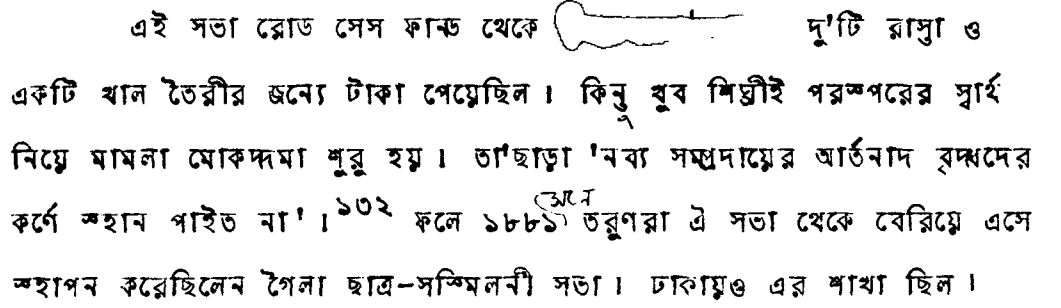 এই সভা রোড সেস ফান্ড থেকে দু'টি রাস্তা ও
একটি খাল তৈরীর জন্যে টাকা পেয়েছিল । কিন্তু খুব শিঘ্রীই পরস্পরের স্বার্থ
নিয়ে মামলা মোকদ্দমা শুরু হয় । তা'ছাড়া 'নব্য সম্প্রদায়ের আর্তনাদ বৃদ্ধদের
কর্ণে স্হান পাইত না' ।১৩২ ফলে ১৮৮১ সনে তরুণরা ঐ সভা থেকে বেরিয়ে এসে
স্হাপন করেছিলেন গৈলা ছাত্র-সম্মিলনী সভা । ঢাকায়ও এর শাখা ছিল ।